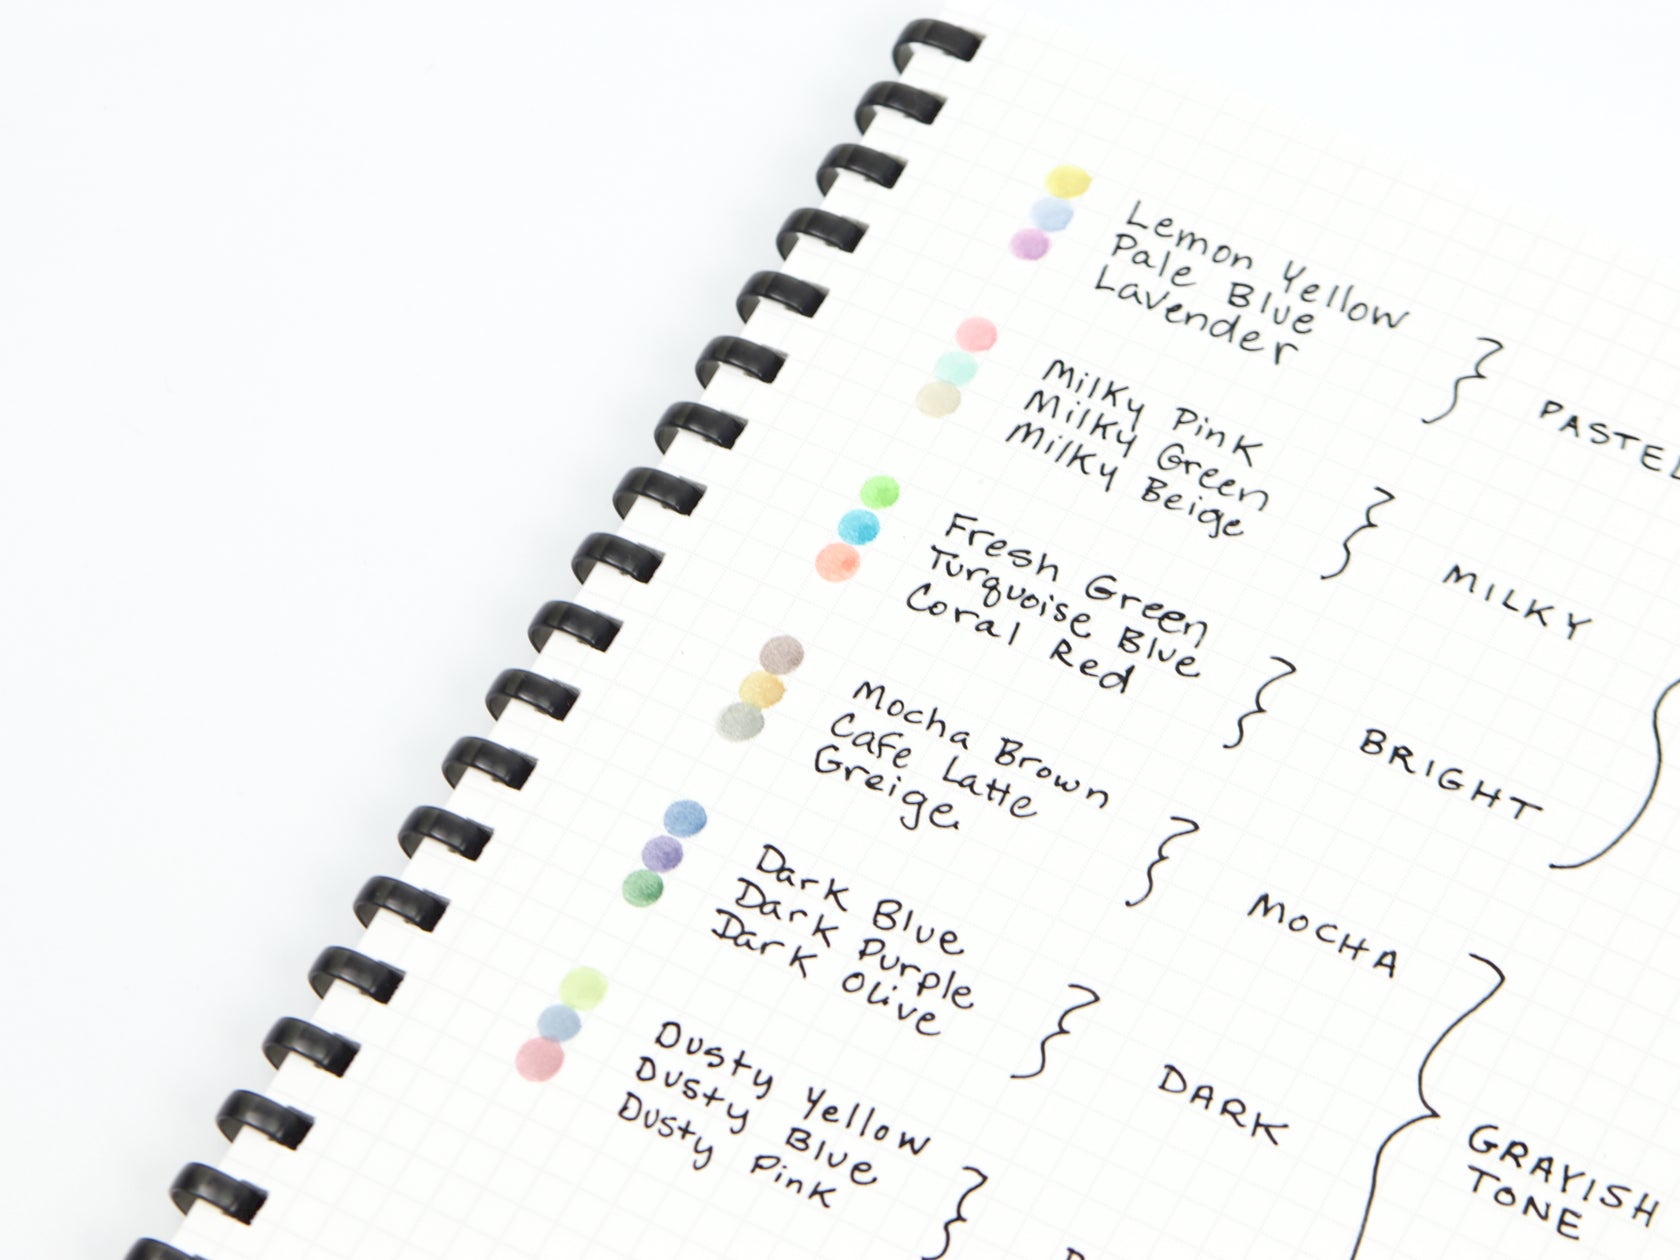 Lemon Yellow
Pale Blue
Lavender
PASTEL
Milky Pink
Milky Green
Milky Beige
MILKY
Fresh Green
Turquoise Blue
Coral Red
BRIGHT
Mocha Brown
Cafe Latte
Greige
MOCHA
Dark Blue
Dark Purple
Dark Olive
DARK
GRAYISH
TONE
Dusty Yellow
Dusty Blue
Dusty Pink